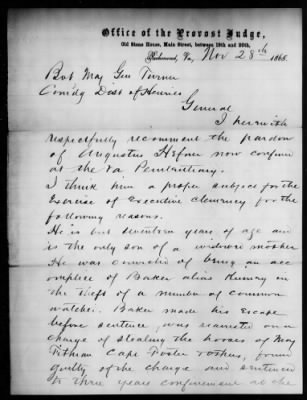 Office of the Provost Judge,
Old Stone House, Main Street, between 19th and 20th,
Richmond, Va, Nov 28th 1865.
Bvt Maj Gen Turner
Comdg Dist of Henrico
General
I herewith
respectfully recommend the pardon
of Augustus Hefner now confined
at the Va Penitentiary.
I think him a proper subject for the
Exercise of Executive clemency for the
following reasons.
He is but seventeen years of age and
is the only son of a widowed mother
He was convicted of being an acc
omplice of Baker alias in
the theft of a number of common
watches. Baker made his escape
before sentence, was rearrested on a
charge of stealing the horses of Maj
Capt Foster &others, found
guilty of the charge and sentenced
to three years confinement at the